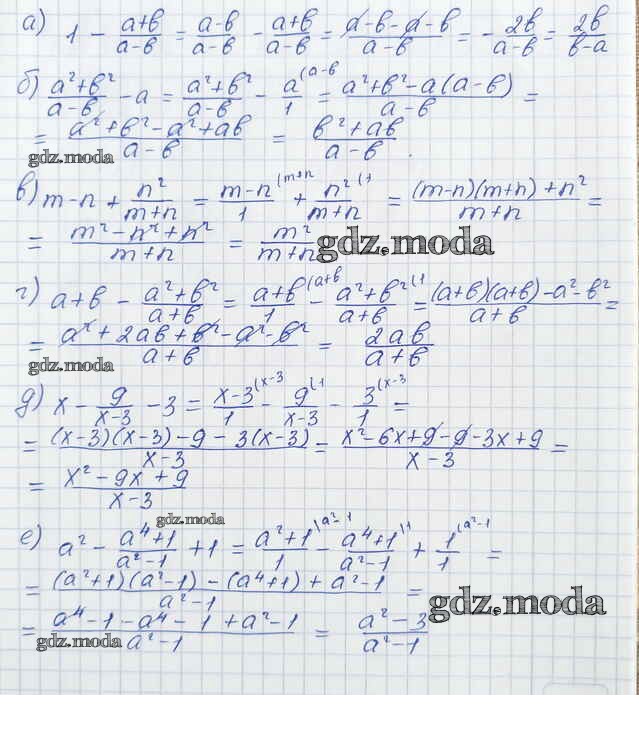 а) 1 - (a+b)/(a-b) = (a-b)/(a-b) - (a+b)/(a-b) = (a-b-a-b)/(a-b) = - 2b/(a-b) = 2b/(b-a)
б) (a²+b²)/(a-b) - a = (a²+b²)/(a-b) - a/1 (a-b = (a²+b²-a(a-b))/(a-b) =
= (a²+b²-a²+ab)/(a-b) = (b²+ab)/(a-b) .
gdz.moda
в) m-n + n²/(m+n) = (m-n)/1 (m+n + n²/(m+n) (1 = ((m-n)(m+n)+n²)/(m+n) =
= (m²-n²+n²)/(m+n) = m²/(m+n)
gdz.moda
г) a+b - (a²+b²)/(a+b) = (a+b)/1 (a+b - (a²+b²)/(a+b) (1 = ((a+b)(a+b)-a²-b²)/(a+b) =
= (a²+2ab+b²-a²-b²)/(a+b) = 2ab/(a+b)
gdz.moda
д) x - 9/(x-3) - 3 = (x-3)/1 (x-3 - 9/(x-3) (1 - 3/1 (x-3 =
= ((x-3)(x-3)-9-3(x-3))/(x-3) = (x²-6x+9-9-3x+9)/(x-3) =
= (x²-9x+9)/(x-3)
gdz.moda
е) a² - (a⁴+1)/(a²-1) + 1 = (a²+1)/1 (a²-1 - (a⁴+1)/(a²-1) (1 + 1/1 (a²-1 =
= ((a²+1)(a²-1)-(a⁴+1)+a²-1)/(a²-1) =
gdz.moda
= (a⁴-1-a⁴-1+a²-1)/(a²-1) = (a²-3)/(a²-1)
gdz.moda